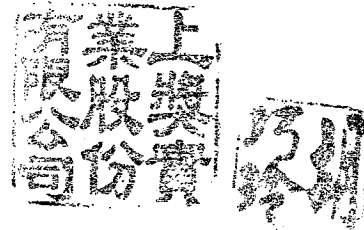 上獎實
業股份
有限公司
巧玲